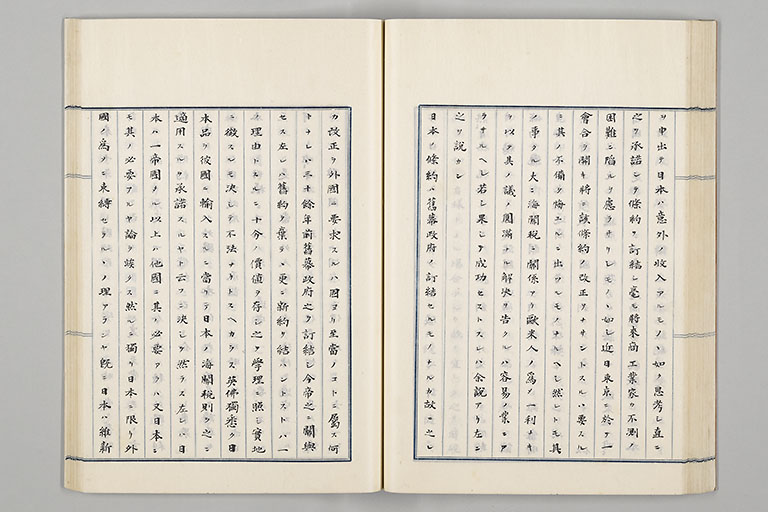 ヲ申出タ日本ハ意外ノ收入アルモノヽ如ク思考シ直ニ
之ヲ承諾シタ條約ヲ訂結シ毫モ將來商工業家ヲ不測ノ
困難ニ陥ルヲ慮ラサリシモノヽ如シ近日東京ニ於テ一
會合ヲ開キ將ニ該條約ノ改正ヲナサントスルハ要スル
ニ其ノ不備ヲ悔ユルニ出ツルモノナルヘシ然レトモ其
ノ事タル大ニ海關税ニ關係アリ歐米人ノ爲メ一利ナキ
ヲ以テ其ノ議ノ圓滿ナル解決ヲ告クルハ容易ノ業ニア
ラサルヘシ若シ果シテ成功セストスレハ余説アリ左ニ
之ヲ説カン
日本ノ條約ハ舊幕政府ノ訂結セルモノナルカ故ニ之レ
カ改正ヲ外國ニ要求スルハ固ヨリ至當ノコトニ屬ス何
トナレハ三十餘年前舊幕政府之ヲ訂結シ今帝之ニ關與
セス左レハ舊約ヲ棄テヽ更ニ新約ヲ結ハントストハ一
ノ理由トスルニ十分ノ價値ヲ存シ之ヲ學理ニ照シ實地
ニ徴スルモ決シテ不法ナリトスヘカラス英佛獨悉ク日
本品ヲ彼國ニ輸入スルニ當リテ日本ノ海關税則ヲ之ニ
適用スルヲ承諾スルヤト云フニ決シテ然ラス左レハ日
本ハ一帝國タル以上ハ他國ニ其ノ必要アラハ又日本ニ
モ其ノ必要アルヤ論ヲ竢タス然ルニ獨リ日本ニ限リ外
國ノ爲メニ束縛セラルヽノ理アランヤ既ニ日本ハ維新